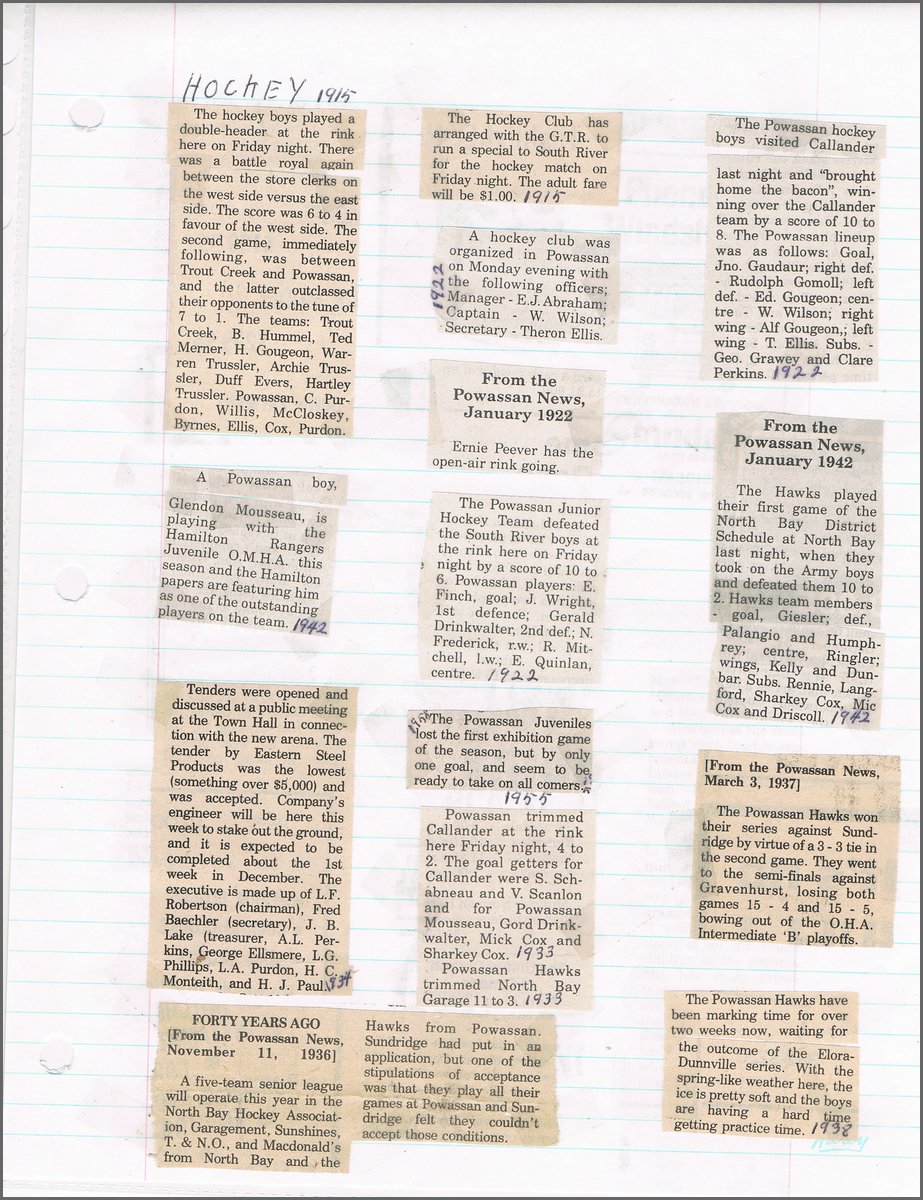 HOCHEY 1915
The hockey boys played a
double-header at the rink
here on Friday night. There
was a battle royal again
between the store clerks on
the west side versus the east
side. The score was 6 to 4 in
favour of the west side. The
second game, immediately
following, was between
Trout Creek and Powassan,
and the latter outclassed
their opponents to the tune of
7 to 1. The teams: Trout
Creek, B. Hummel, Ted
Merner, H. Gougeon, War-
ren Trussler, Archie Trus-
sler, Duff Evers, Hartley
Trussler. Powassan, C. Pur-
don, Willis, McCloskey,
Byrnes, Ellis, Cox, Purdon.
A Powassan boy,
Glendon Mousseau, is
playing with the
Hamilton Rangers
Juvenile O.M.H.A. this
season and the Hamilton
papers are featuring him
as one of the outstanding
players on the team. 1942
Tenders were opened and
discussed at a public meeting
at the Town Hall in connec-
tion with the new arena. The
tender by Eastern Steel
Products was the lowest
(something over $5,000) and
was accepted. Company's
engineer will be here this
week to stake out the ground,
and it is expected to be
completed about the 1st
week in December. The
executive is made up of L.F.
Robertson (chairman), Fred
Baechler (secretary), J. B.
Lake (treasurer, A.L. Per-
kins, George Ellsmere, L.G.
Phillips, L.A. Purdon, H. C.
Monteith, and H. J. Paul. 1934
The Hockey Club has
arranged with the G.T.R. to
run a special to South River
for the hockey match on
Friday night. The adult fare
will be $1.00. 1915
1922
A hockey club was
organized in Powassan
on Monday evening with
the following officers;
Manager - E.J. Abraham;
Captain - W. Wilson;
Secretary - Theron Ellis.
From the
Powassan News,
January 1922
Ernie Peever has the
open-air rink going.
The Powassan Junior
Hockey Team defeated
the South River boys at
the rink here on Friday
night by a score of 10 to
6. Powassan players: E.
Finch, goal; J. Wright,
1st defence; Gerald
Drinkwalter, 2nd def.; N.
Frederick, r.w.; R. Mit-
chell, l.w.; E. Quinlan,
centre. 1922
The Powassan Juveniles
lost the first exhibition game
of the season, but by only
one goal, and seem to be
ready to take on all comers.
1955
Powassan trimmed
Callander at the rink
here Friday night, 4 to
2. The goal getters for
Callander were S. Sch-
abneau and V. Scanlon
and for Powassan
Mousseau, Gord Drink-
walter, Mick Cox and
Sharkey Cox. 1933
Powassan Hawks
trimmed North Bay
Garage 11 to 3. 1933
FORTY YEARS AGO
[From the Powassan News,
November 11, 1936]
A five-team senior league
will operate this year in the
North Bay Hockey Associat-
ion, Garagement, Sunshines,
T. & N.O., and Macdonald's
from North Bay and the
Hawks from Powassan.
Sundridge had put in an
application, but one of the
stipulations of acceptance
was that they play all their
games at Powassan and Sun-
dridge felt they couldn't
accept those conditions.
The Powassan hockey
boys visited Callander
last night and "brought
home the bacon", win-
ning over the Callander
team by a score of 10 to
8. The Powassan lineup
was as follows: Goal,
Jno. Gaudaur; right def.
- Rudolph Gomoll; left
def. - Ed. Gougeon; cen-
tre - W. Wilson; right
wing - Alf Gougeon,; left
wing - T. Ellis. Subs. -
Geo. Grawey and Clare
Perkins. 1922
From the
Powassan News,
January 1942
The Hawks played
their first game of the
North Bay District
Schedule at North Bay
last night, when they
took on the Army boys
and defeated them 10 to
2. Hawks team members
- goal, Giesler; def.,
Palangio and Humph-
rey; centre, Ringler;
wings, Kelly and Dun-
bar. Subs. Rennie, Lang-
ford, Sharkey Cox, Mic
Cox and Driscoll. 1942
[From the Powassan News,
March 3, 1937]
The Powassan Hawks won
their series against Sund-
ridge by virtue of a 3 - 3 tie in
the second game. They went
to the semi-finals against
Gravenhurst, losing both
games 15 - 4 and 15 - 5,
bowing out of the O.H.A.
Intermediate 'B' playoffs.
The Powassan Hawks have
been marking time for over
two weeks now, waiting for
the outcome of the Elora-
Dunnville series. With the
spring-like weather here, the
ice is pretty soft and the boys
are having a hard time
getting practice time. 1938